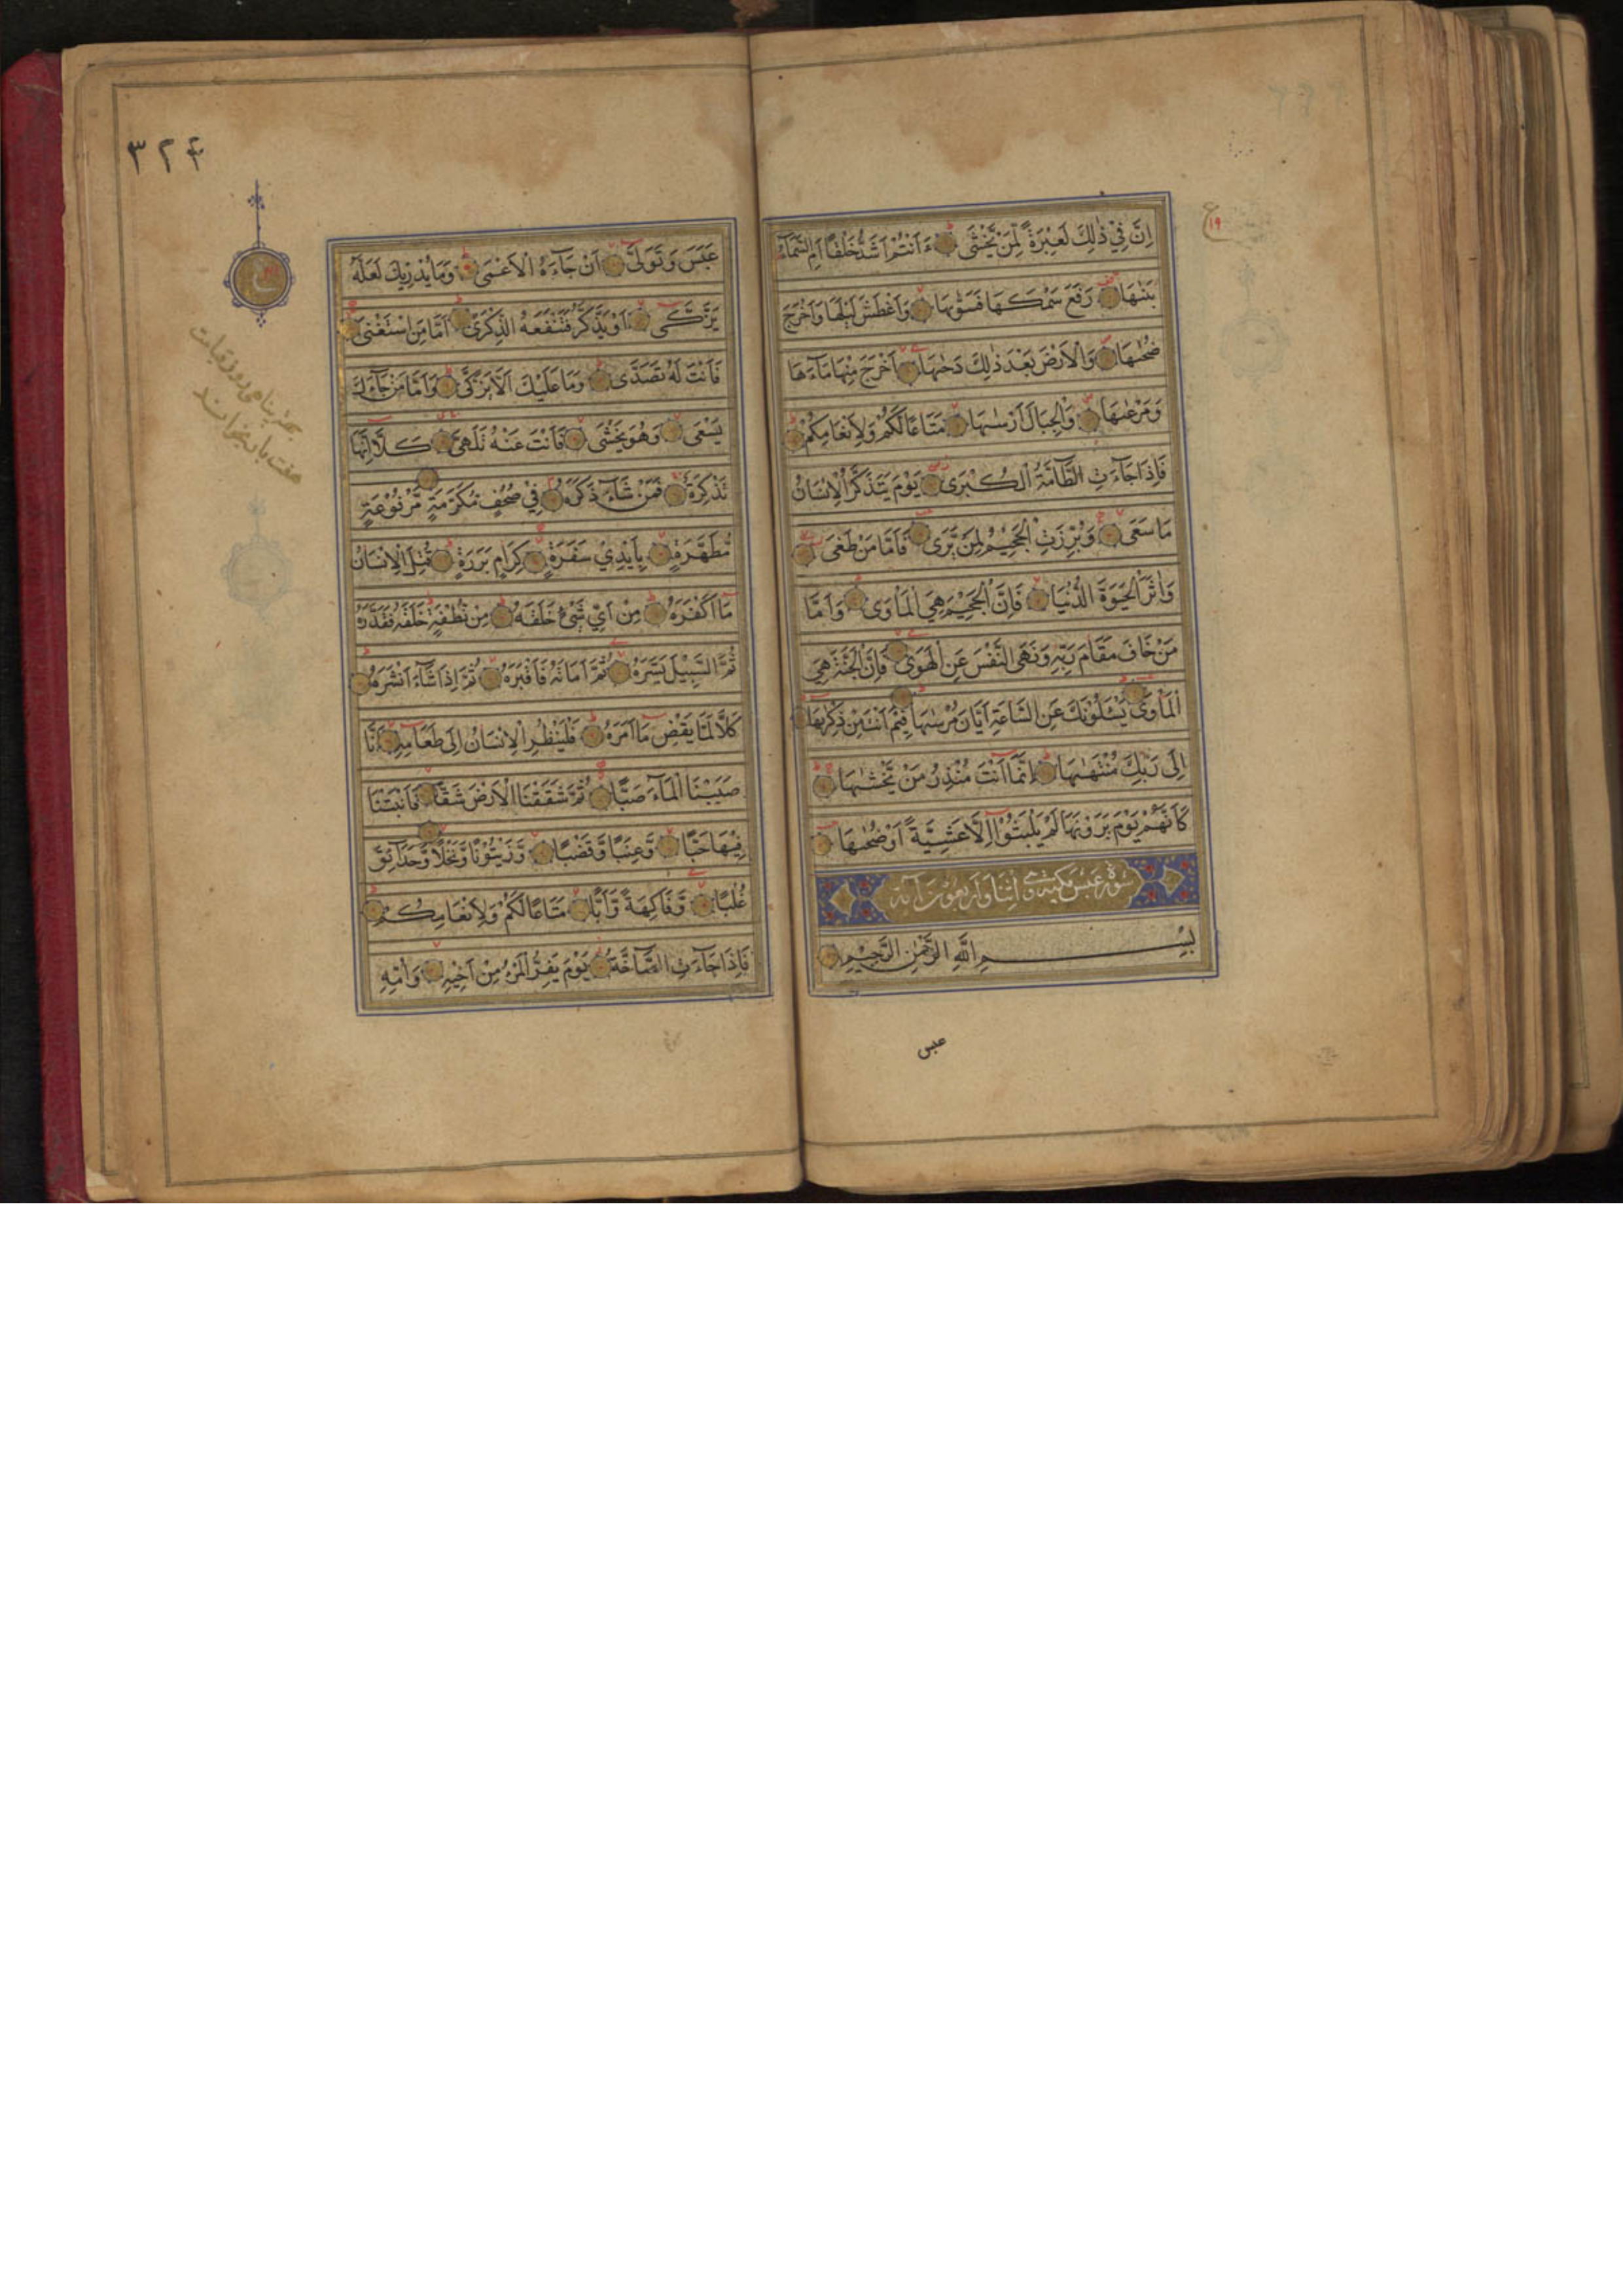 اِنَّ فِيْ ذٰلِكَ لَعِبْرَةً لِّمَنْ يَّخْشٰى ءَاَنْتُمْ اَشَدُّ خَلْقًا اَمِ السَّمَآءُ
بَنٰىهَا رَفَعَ سَمْكَهَا فَسَوّٰىهَا وَاَغْطَشَ لَيْلَهَا وَاَخْرَجَ
ضُحٰىهَا وَالْاَرْضَ بَعْدَ ذٰلِكَ دَحٰىهَا اَخْرَجَ مِنْهَا مَآءَهَا
وَمَرْعٰىهَا وَالْجِبَالَ اَرْسٰىهَا مَتَاعًا لَّكُمْ وَلِاَنْعَامِكُمْ
فَاِذَا جَآءَتِ الطَّآمَّةُ الْكُبْرٰى يَوْمَ يَتَذَكَّرُ الْاِنْسَانُ
مَا سَعٰى وَبُرِّزَتِ الْجَحِيْمُ لِمَنْ يَّرٰى فَاَمَّا مَنْ طَغٰى
وَاٰثَرَ الْحَيٰوةَ الدُّنْيَا فَاِنَّ الْجَحِيْمَ هِيَ الْمَاْوٰى وَاَمَّا
مَنْ خَافَ مَقَامَ رَبِّهٖ وَنَهَى النَّفْسَ عَنِ الْهَوٰى فَاِنَّ الْجَنَّةَ هِيَ
الْمَاْوٰى يَسْـَٔلُوْنَكَ عَنِ السَّاعَةِ اَيَّانَ مُرْسٰىهَا فِيْمَ اَنْتَ مِنْ ذِكْرٰىهَا
اِلٰى رَبِّكَ مُنْتَهٰىهَا اِنَّمَآ اَنْتَ مُنْذِرُ مَنْ يَّخْشٰىهَا
كَاَنَّهُمْ يَوْمَ يَرَوْنَهَا لَمْ يَلْبَثُوْٓا اِلَّا عَشِيَّةً اَوْ ضُحٰىهَا
سورة عبس مكية وهي اثنا واربعون آية
بِسْمِ اللّٰهِ الرَّحْمٰنِ الرَّحِيْمِ
عبس
٣٢۴
عَبَسَ وَتَوَلّٰى اَنْ جَآءَهُ الْاَعْمٰى وَمَا يُدْرِيْكَ لَعَلَّهٗ
يَزَّكّٰى اَوْ يَذَّكَّرُ فَتَنْفَعَهُ الذِّكْرٰى اَمَّا مَنِ اسْتَغْنٰى
فَاَنْتَ لَهٗ تَصَدّٰى وَمَا عَلَيْكَ اَلَّا يَزَّكّٰى وَاَمَّا مَنْ جَآءَكَ
يَسْعٰى وَهُوَ يَخْشٰى فَاَنْتَ عَنْهُ تَلَهّٰى كَلَّآ اِنَّهَا
تَذْكِرَةٌ فَمَنْ شَآءَ ذَكَرَهٗ فِيْ صُحُفٍ مُّكَرَّمَةٍ مَّرْفُوْعَةٍ
مُّطَهَّرَةٍ بِاَيْدِيْ سَفَرَةٍ كِرَامٍ بَرَرَةٍ قُتِلَ الْاِنْسَانُ
مَآ اَكْفَرَهٗ مِنْ اَيِّ شَيْءٍ خَلَقَهٗ مِنْ نُّطْفَةٍ خَلَقَهٗ فَقَدَّرَهٗ
ثُمَّ السَّبِيْلَ يَسَّرَهٗ ثُمَّ اَمَاتَهٗ فَاَقْبَرَهٗ ثُمَّ اِذَا شَآءَ اَنْشَرَهٗ
كَلَّا لَمَّا يَقْضِ مَآ اَمَرَهٗ فَلْيَنْظُرِ الْاِنْسَانُ اِلٰى طَعَامِهٖٓ اَنَّا
صَبَبْنَا الْمَآءَ صَبًّا ثُمَّ شَقَقْنَا الْاَرْضَ شَقًّا فَاَنْبَتْنَا
فِيْهَا حَبًّا وَّعِنَبًا وَّقَضْبًا وَّزَيْتُوْنًا وَّنَخْلًا وَّحَدَآئِقَ
غُلْبًا وَّفَاكِهَةً وَّاَبًّا مَتَاعًا لَّكُمْ وَلِاَنْعَامِكُمْ
فَاِذَا جَآءَتِ الصَّآخَّةُ يَوْمَ يَفِرُّ الْمَرْءُ مِنْ اَخِيْهِ وَاُمِّهٖ
روز قيامت
هفت بار بخوانند